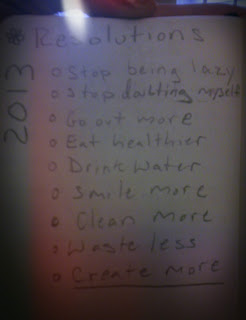 * Resolutions
2013
o Stop being lazy
o Stop doubting myself
o Go out more
o Eat healthier
o Drink water
o Smile more
o Clean more
o Waste less
o Create more